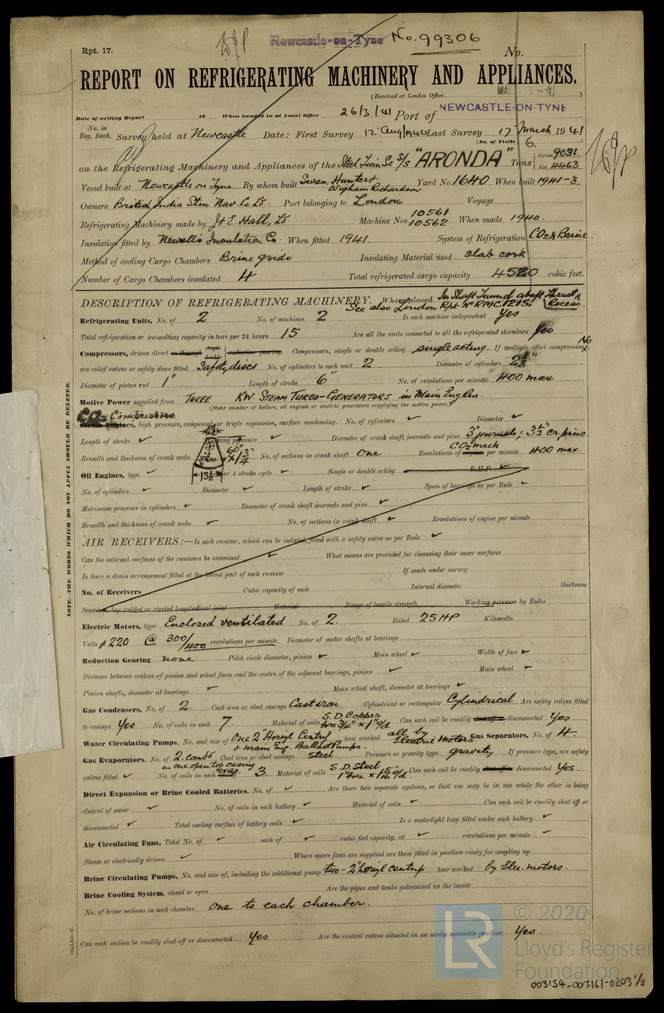 Rpt. 17.
Newcastle-on-Tyne No. 99306
No.
REPORT ON REFRIGERATING MACHINERY AND APPLIANCES.
(Received at London Office
Date of writing Report 19 When handed in at Local Office 26/3/41 Port of NEWCASTLE-ON-TYNE
No. in Reg. Book. Survey held at Newcastle Date: First Survey 12 Aug/1940 Last Survey 17 March 1941
(No. of Visits 6.
on the Refrigerating Machinery and Appliances of the Steel Twin Sc S/S "ARONDA" Tons Gross 9031 Net 4463
Vessel built at Newcastle on Tyne By whom built Swan, Hunter & Wigham Richardson Yard No. 1640 When built 1941-3.
Owners British India Stm Nav. Co. Ld. Port belonging to London Voyage
Refrigerating Machinery made by J & E. Hall, Ld Machine Nos 10561 10562 When made 1940.
Insulation fitted by Newalls Insulation Co. When fitted 1941. System of Refrigeration CO2 & Brine
Method of cooling Cargo Chambers Brine grids Insulating Material used slab cork
Number of Cargo Chambers insulated 4 Total refrigerated cargo capacity 4520 cubic feet.
DESCRIPTION OF REFRIGERATING MACHINERY. Where placed In Shaft Tunnel abaft Thrust Recess.
See also London Rpt No RMC 1215!
Refrigerating Units, No. of 2 No. of machines 2 Is each machine independent Yes
Total refrigeration or ice-making capacity in tons per 24 hours 15 Are all the units connected to all the refrigerated chambers Yes
Compressors, driven direct Compressors, single or double acting single acting. If multiple effect compression No
are relief valves or safety discs fitted Safety discs No. of cylinders to each unit 2 Diameter of cylinders
Diameter of piston rod 1" Length of stroke 6" No. of revolutions per minute 400 max
Motive Power supplied from THREE KW STEAM TURBO-GENERATORS in Main Eng Rm.
(State number of boilers, oil engines or electric generators supplying the motive power)
CO2 Compressors
Steam Engines, high pressure, compound or triple expansion, surface condensing. No. of cylinders Diameter
Length of stroke Working pressure Diameter of crank shaft journals and pins 3" journals; 3½" cr. pins
Breadth and thickness of crank webs No. of sections in crank shaft One Revolutions of CO2 mach per minute 400 max
13½
Oil Engines, type 2 or 4 stroke cycle Single or double acting B.H.P.
No. of cylinders Diameter Length of stroke Span of bearings as per Rule
Maximum pressure in cylinders Diameter of crank shaft journals and pins
Breadth and thickness of crank webs No. of sections in crank shaft Revolutions of engine per minute
AIR RECEIVERS:—Is each receiver, which can be isolated, fitted with a safety valve as per Rule
Can the internal surfaces of the receivers be examined What means are provided for cleansing their inner surfaces
Is there a drain arrangement fitted at the lowest part of each receiver If made under survey
No. of Receivers Cubic capacity of each Internal diameter thickness
Seamless, lap welded or riveted longitudinal joint Material Range of tensile strength Working pressure by Rules
Electric Motors, type Enclosed ventilated No. of 2. Rated 25 HP Kilowatts
Volts 220 @ 300/400 revolutions per minute. Diameter of motor shafts at bearings
Reduction Gearing none Pitch circle diameter, pinion Main wheel Width of face
Distance between centres of pinion and wheel faces and the centre of the adjacent bearings, pinion Main wheel
Pinion shafts, diameter at bearings Main wheel shaft, diameter at bearings
Gas Condensers, No. of 2. Cast iron or steel casings Cast iron Cylindrical or rectangular Cylindrical Are safety valves fitted
to casings Yes No. of coils in each 7 Material of coils S.D. Copper Can each coil be readily disconnected Yes
Water Circulating Pumps, No. and size of One 2" Horizl Centrif + main Eng. Ballast Pumps. how worked all by Electric Motors Gas Separators, No. of 4.
Gas Evaporators, No. of 2. combd in one open top casing Cast iron or steel casings Steel Pressure or gravity type gravity If pressure type, are safety
valves fitted No. of coils in each evap. 3. Material of coils S.D. Steel Can each coil be readily disconnected Yes.
Direct Expansion or Brine Cooled Batteries, No. of Are there two separate systems, so that one may be in use while the other is being
cleared of snow No. of coils in each battery Material of coils Can each coil be readily shut off or
disconnected Total cooling surface of battery coils Is a watertight tray fitted under each battery
Air Circulating Fans, Total No. of each of cubic feet capacity, at revolutions per minute
Steam or electrically driven Where spare fans are supplied are these fitted in position ready for coupling up
Brine Circulating Pumps, No. and size of, including the additional pump two-2" horizl centrif how worked by Elec. motors.
Brine Cooling System, closed or open Are the pipes and tanks galvanised on the inside
No. of brine sections in each chamber One to each chamber.
Can each section be readily shut off or disconnected Yes Are the control valves situated in an easily accessible position Yes.
NOTE.—THE WORDS WHICH DO NOT APPLY SHOULD BE DELETED.
LR
© 2020
Lloyd's Register
Foundation
003154-003161-0203½